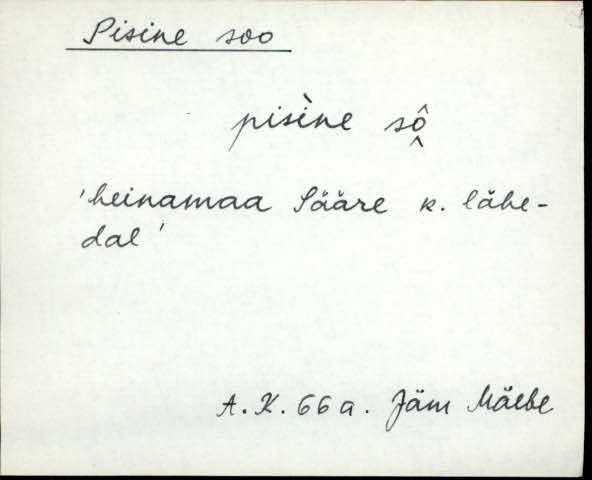 Pisine soo
pisìne sô̭
'heinamaa Sääre k. lähe-
dal'
A.K. 66 a. Jäm Mäebe